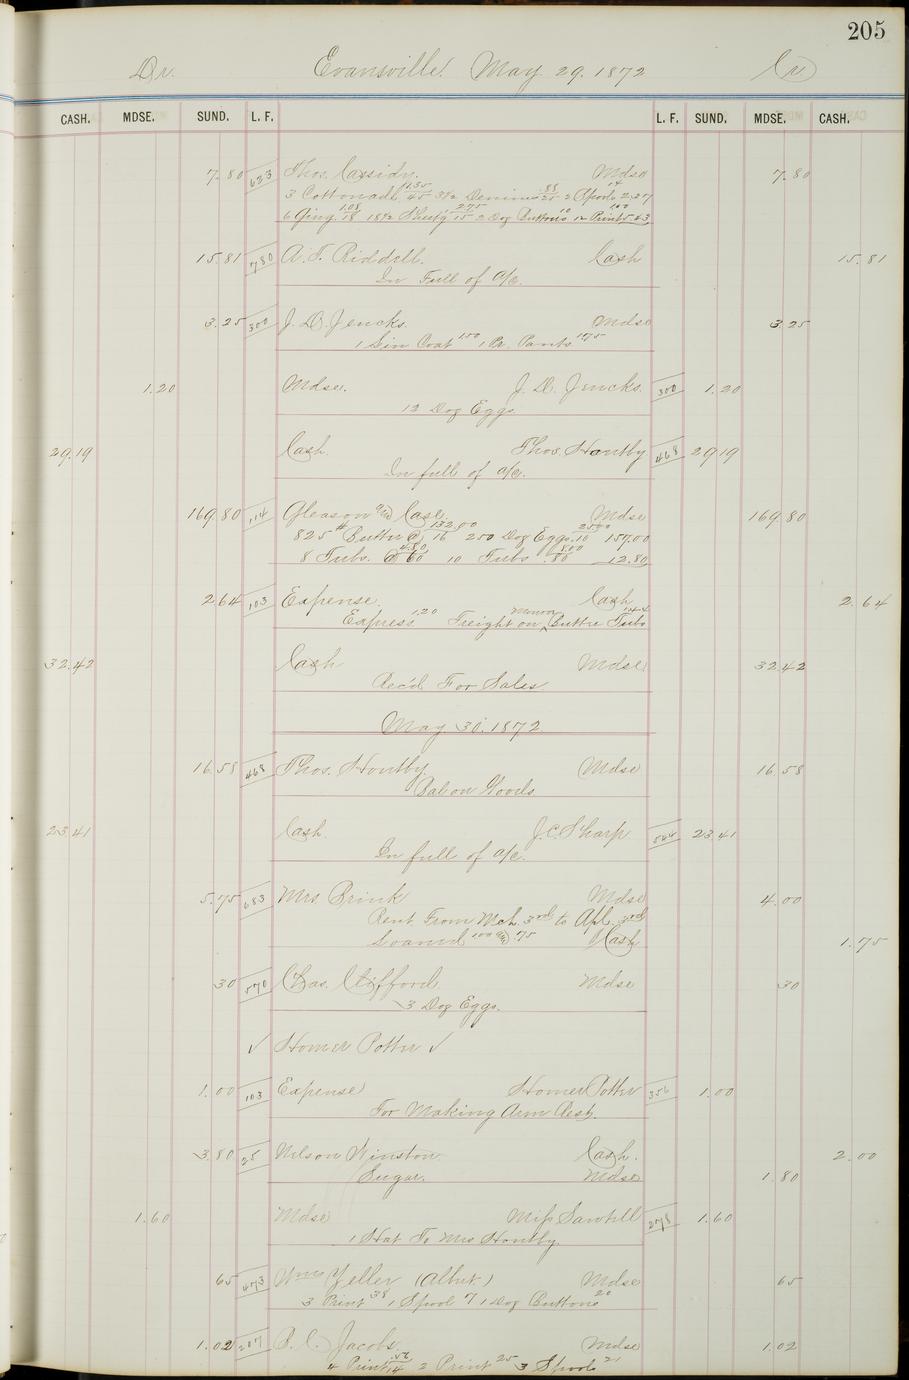 205
Dr. Evansville May 29. 1872 Cr
CASH. MDSE. SUND. L. F. L. F. SUND. MDSE. CASH.
7.80 623 Thos. Cassidy. Mdse 7.80
3 Cottonade 11.35/45 3½ Denims .88/25 2 Spools 14 2.27
6 Ging 1.08/18 18½ Sheetg 2.75/15 2 Doz Buttons 10 12 Print 1.60 5.53
15.81 780 A. T. Riddell. Cash 15.81
In Full of a/c.
3.25 300 J. D. Jencks. Mdse 3.25
1 Lin Coat 1.50 1 Pr. Pants 1.75
1.20 Mdse. J. D. Jencks. 300 1.20
12 Doz Eggs
29.19 Cash. Thos. Hontby 468 29.19
In full of a/c.
169.80 114 Gleason and Case. Mdse 169.80
825 # Butter @ 132.00/16 250 Doz Eggs 25.00/10 157.00
8 Tubs. @ 4.80/60 10 Tubs 8.00/.80 12.80
2.64 103 Expense. Cash 2.64
Express 1.20 Freight on Butter Tubs 1.44
32.42 Cash Mdse 32.42
Rec'd For Sales
May 30. 1872
16.58 468 Thos. Hontby. Mdse 16.58
Bal on Goods.
23.41 Cash. J. C. Sharp 564 23.41
In full of a/c.
5.75 683 Mrs Brink Mdse 4.00
Rent. From Mch. 3rd to Apl. 3rd
Loaned 1.00 and .75 Cash 1.75
30 570 Chas. Clifford. Mdse 30
3 Doz Eggs.
✓ Homer Potter ✓
1.00 103 Expense Homer Potter 356 1.00
For Making Arm Rest.
3.80 25 Nelson Winston. Cash. 2.00
Sugar. Mdse 1.80
1.60 Mdse Miss Sawtell 278 1.60
1 Hat To Mrs Hontby.
65 473 Wm Yeller (Albert.) Mdse 65
3 Print 38 1 Spool 7 1 Doz Buttons 20
1.02 207 P. C. Jacobs. Mdse 1.02
4 Print .56/14 2 Print 25 3 Spools 21